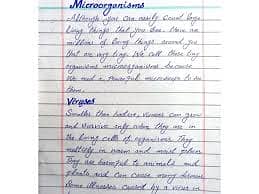 Microorganisms
Although you can easily count large
living things that you see. There are
millions of living things around you
that are very tiny. We call these tiny
organisms microorganisms because
we need a powerful microscope to see
them.
Viruses
Smaller than bacteria, viruses can grow
and survive only when they are in
the living cells of organisms. They
multiply in warm and moist places.
They are harmful to animals and
plants and can cause many diseases.
Some illnesses caused by a virus in